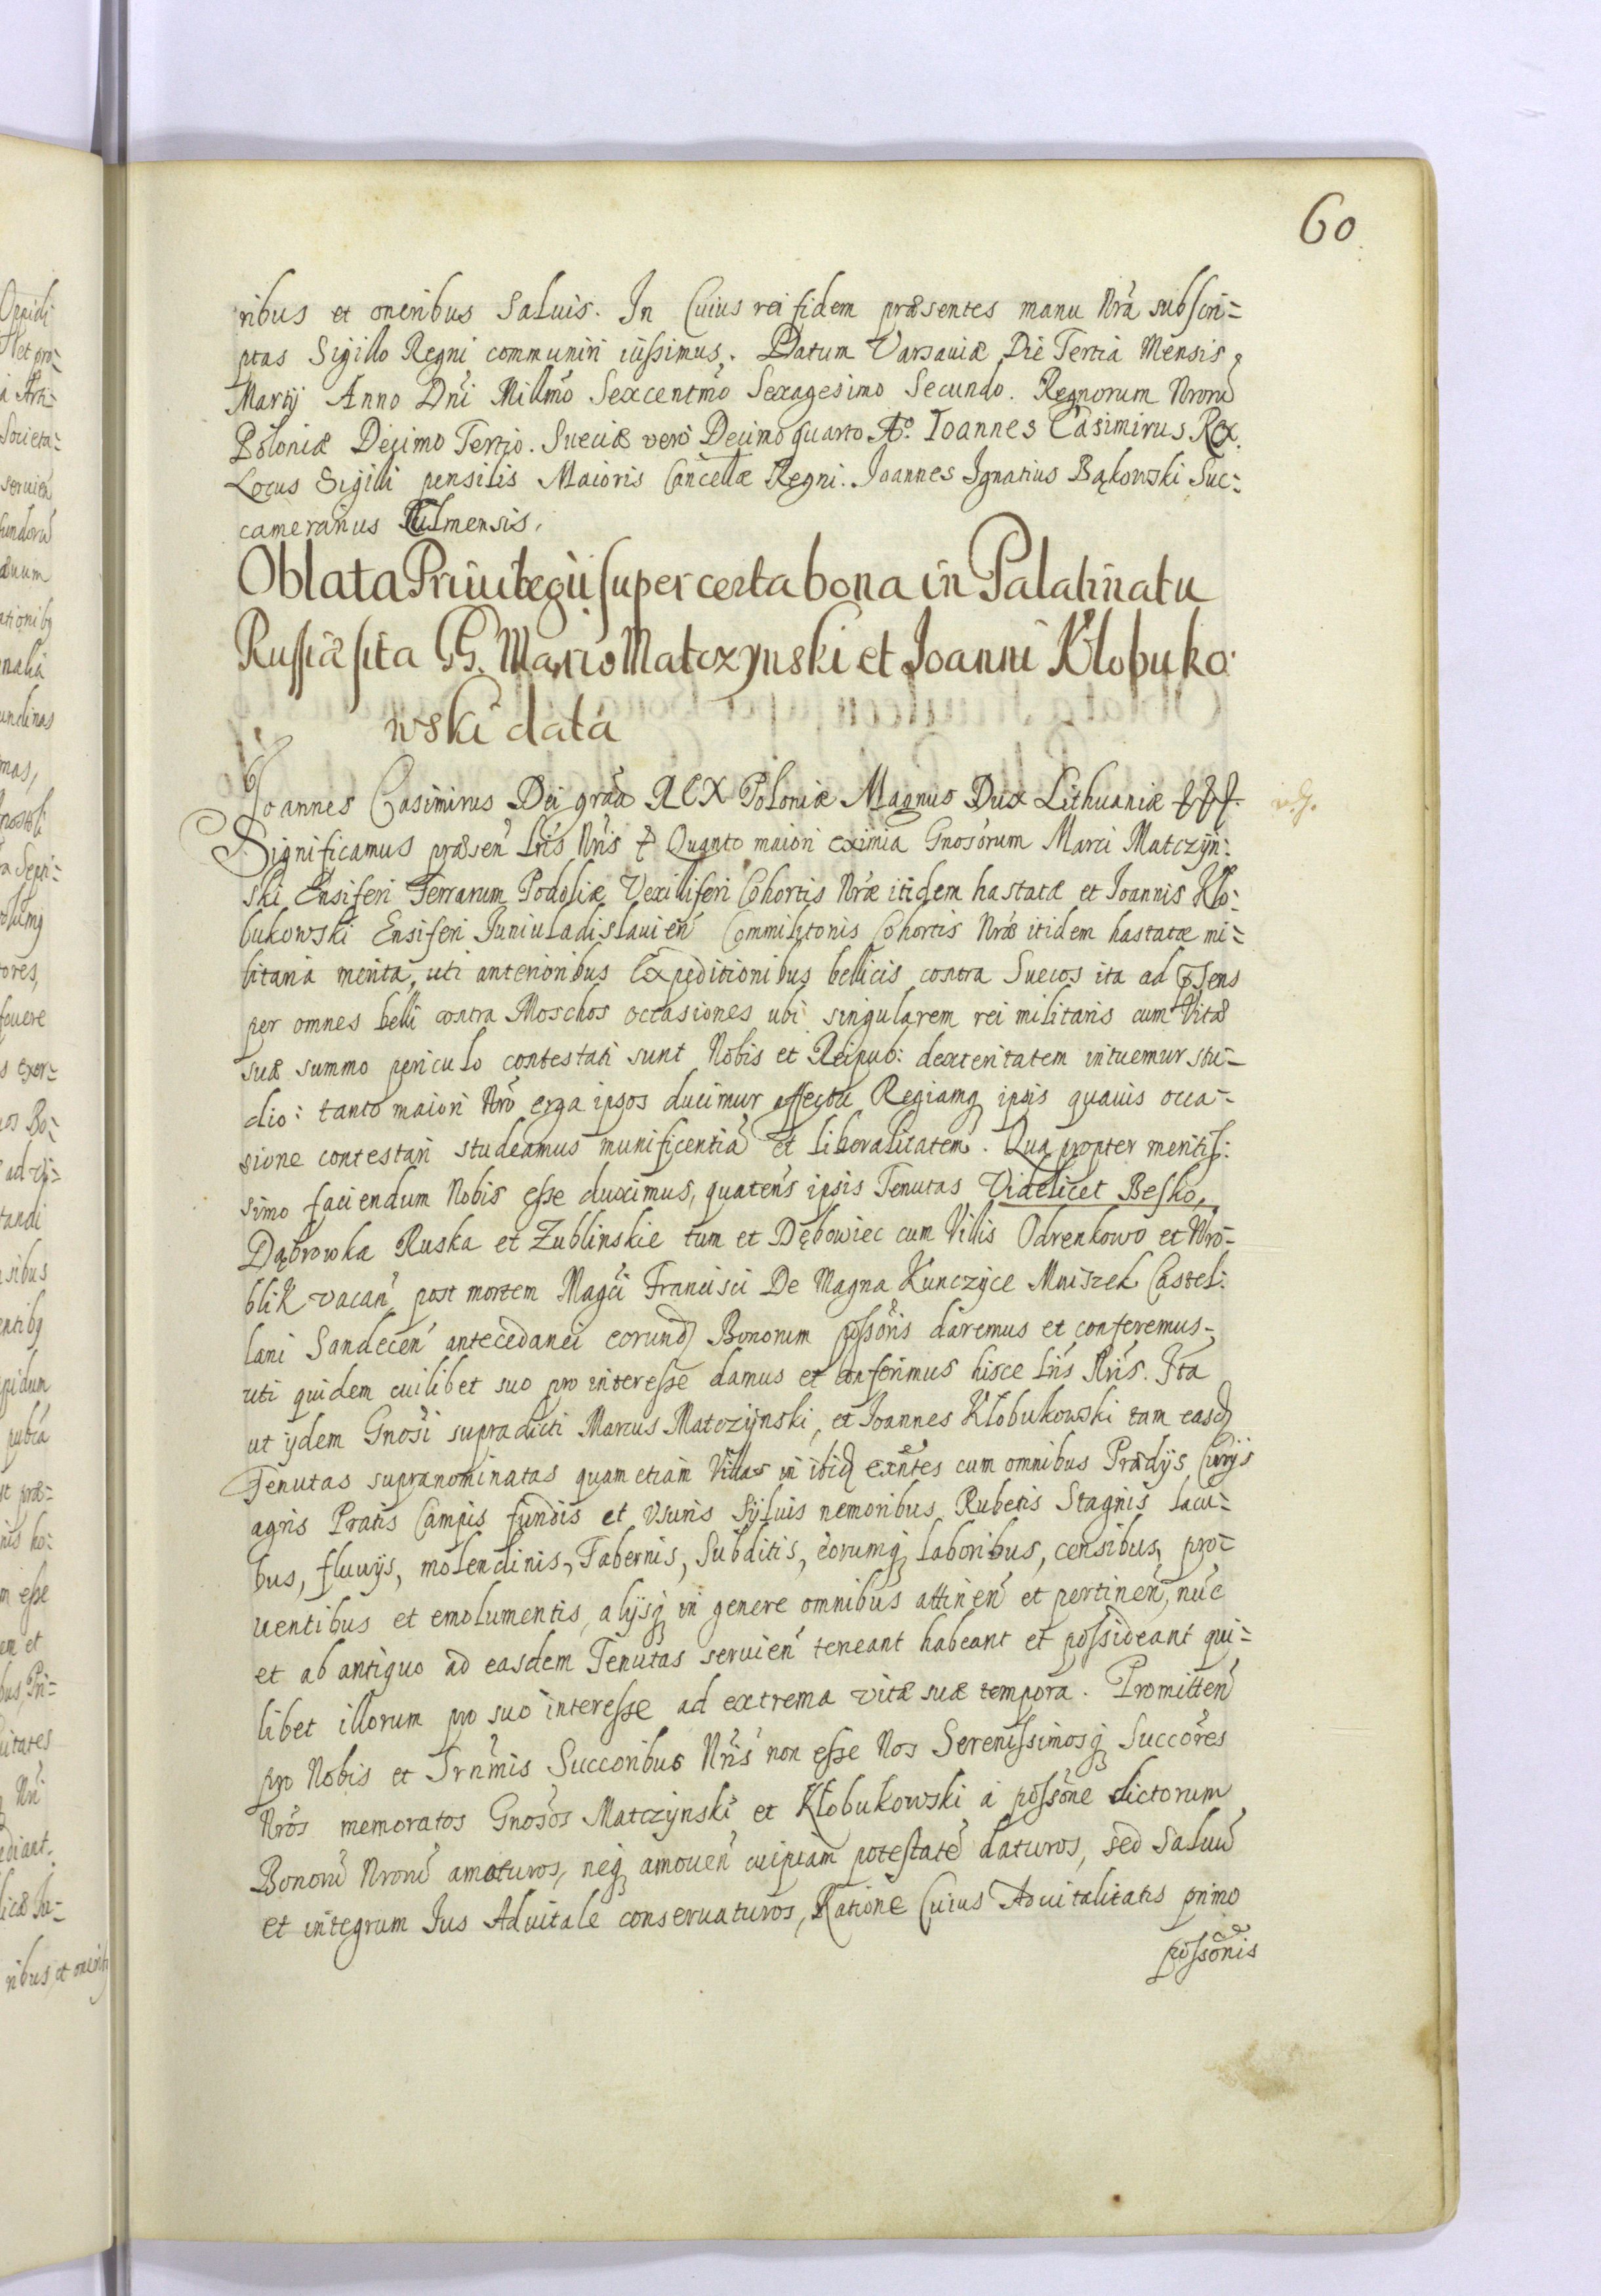 60
ribus et oneribus Saluis. In Cuius rei fidem præsentes manu Nrã subscri=
ptas Sigillo Regni communiri iussimus. Datum Varsauiæ Die Tertia Mensis
Martij Anno Dñi Millmõ Sexcentmõ Sexagesimo Secundo. Regnorum Nrorũ
Poloniæ Decimo Tertio. Sueciæ verò Decimo quarto Aº. Ioannes Casimirus Rex.
Locus Sigilli pensilis Maioris Cancellæ Regni. Joannes Ignatius Bąkowski Suc=
camerarius Culmensis.
Oblata Priuilegii super certa bona in Palatinatu
Russiæ sita GG. Marco Matczynski et Joanni Kłobuko:
wski data
Joannes Casimirus Dei grãa REX Poloniæ Magnus Dux Lithuaniæ
Significamus præsen̄ Lr̃is Nr̃is Quanto maiori eximia Gnosorum Marci Matczyn:
ski Ensiferi Terrarum Podoliæ Vexilliferi Cohortis Nræ itidem hastatæ et Joannis Kło:
bukowski Ensiferi Juniuladislauień Commilitonis Cohortis Nræ itidem hastatæ mi=
litaria merita, uti anterioribus Expeditionibus bellicis contra Suecos ita ad p̃sens
per omnes belli contra Moschos occasiones ubi singularem rei militaris cum Vitæ
suæ summo periculo contestati sunt Nobis et Reipub: dexteritatem intuemur stu=
dio: tanto maiori Nrõ erga ipsos ducimur affectu Regiamq ipsis quauis occa=
sione contestari studeamus munificentiã et liberalitatem. Qua propter meritis:
simo faciendum Nobis esse duximus, quateñs ipsis Tenutas Videlicet Besko,
Dąbrowka Ruska et Zublinskie tum et Dębowiec cum Villis Odrenkowo et Wro=
blik vacań post mortem Magci Francisci De Magna Kunczyce Mniszek Castel:
lani Sandeceń antecedanei eorund Bonorum possoris daremus et conferemus,
uti quidem cuilibet suo pro interesse damus et conferimus hisce Lr̃is Nr̃is. Ita
ut ijdem Gnosi supradicti Marcus Matczijnski, et Joannes Kłobukowski tam easd
Tenutas supranominatas quam etiam Villas in ibid exñtes cum omnibus Prædijs Curijs
agris Pratis Campis fundis et Vsuris Syluis nemoribus Rubetis Stagnis lacu=
bus, fluuijs, molendinis, Tabernis, Subditis, eorumq laboribus, censibus, pro=
uentibus et emolumentis, alijsq in genere omnibus attineń et pertineń, nũc
et ab antiquo ad easdem Tenutas seruień teneant habeant et possideant qui=
libet illorum pro suo interesse ad extrema vitæ suæ tempora. Promitteń
pro Nobis et Srnmis Succoribus Nr̃is non esse Nos Serenissimosq Succores
Nros memoratos Gnosos Matczynski et Kłobukowski a possone dictorum
Bonorũ Nrorũ amoturos, neq amoueń cuipiam potestatẽ daturos, sed Saluũ
et integrum Ius Aduitale conseruaturos, Ratione Cuius Aduitalitatis primo
possonis